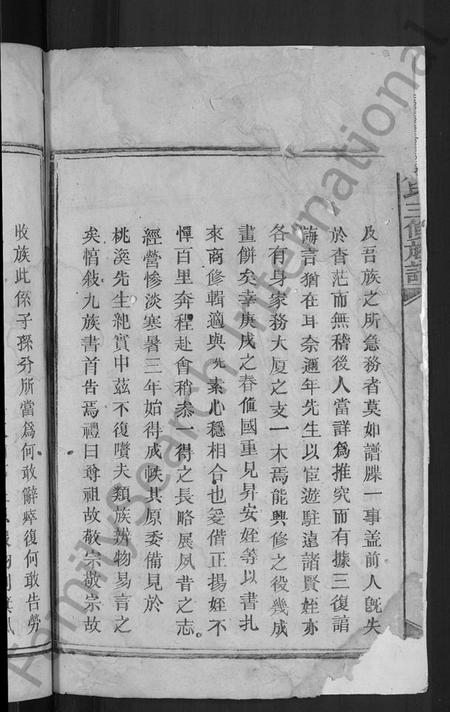 及吾族之所急務者莫如譜牒一事盖前人旣失
於杳茫而無稽後人當詳爲推究而有據三復諸
誨言猶在耳奈邇年先生以宦遊駐遠諸賢姪亦
各有身家務大厦之支一木焉能興修之役幾成
畫餅矣幸庚戌之春僱國重見昇安姪等以書扎
來商修輯適與先素心穩相合也爰偕正揚姪不
憚百里奔程赴會稍叅一得之長略展夙昔之志
經營慘淡寒暑三年始得成帙其原委備見於
桃溪先生紀實中茲不復贅夫類族辨物易言之
矣惇敍九族書首告焉禮曰尊祖故敬宗敬宗故
收族此係子孫分所當爲何敢辭瘁復何敢告勞
三修族譜
FamilySearch International